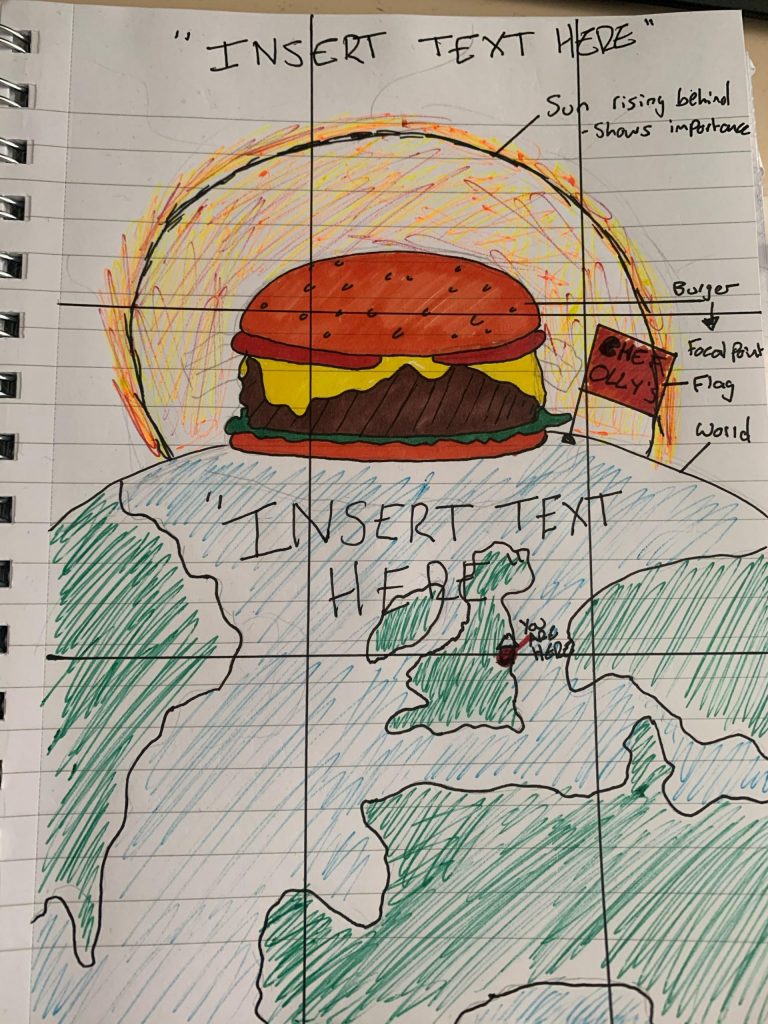 "INSERT TEXT HERE"
Sun rising behind
- Shows importance
Burger
Focal Point
CHEF
OLLY'S
Flag
World
"INSERT TEXT
HERE"
YOU
ARE
HERE